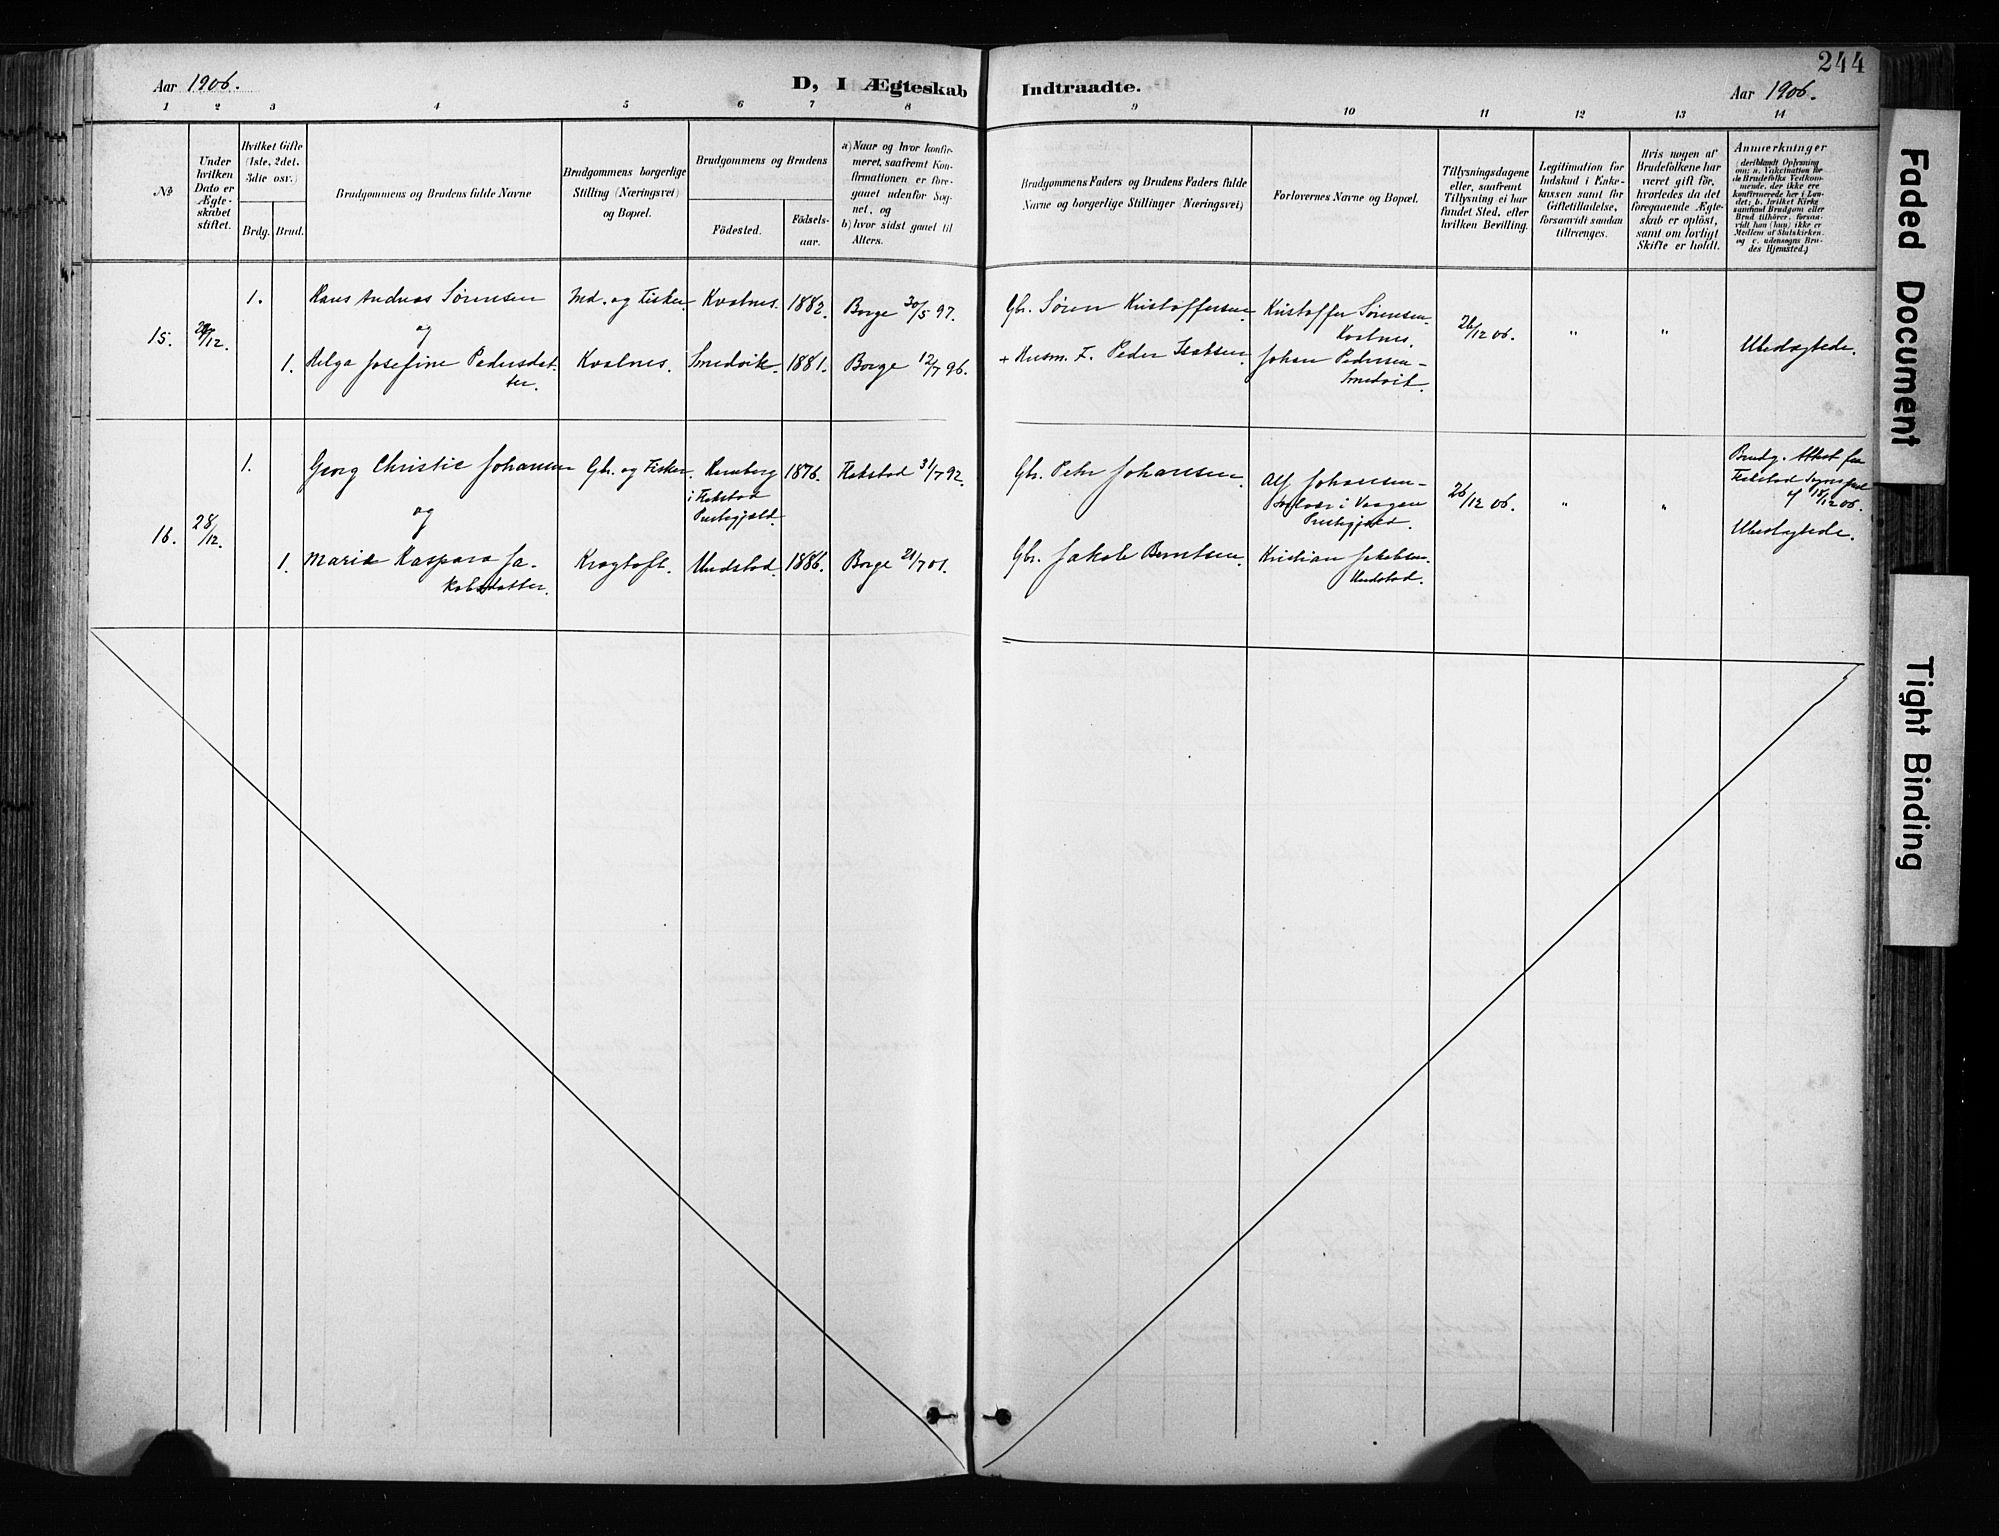 244
Aar 1906.
D, I Ægteskab Indtraadte.
Aar 1906.
1 2 3 4 5 6 7 8 9 10 11 12 13 14
No
Under
hvilken
Dato er
Ægte-
skabet
stiftet.
Hvilket Gifte
(1ste, 2det,
3die osv.)
Brdg. Brud.
Brudgommens og Brudens fulde Navne
Brudgommens borgerlige
Stilling (Næringsvei)
og Bopæl.
Brudgommens og Brudens
Födested.
Födsels-
aar.
a) Naar og hvor konfir-
meret, saafremt Kon-
firmationen er fore-
gaaet udenfor Sog-
net, og
b) hvor sidst gaaet til
Alters.
Brudgommens Faders og Brudens Faders fulde
Navne og borgerlige Stillinger (Næringsvei)
Forlovernes Navne og Bopæl.
Tillysningsdagene
eller, saafremt
Tillysning ei har
fundet Sted, efter
hvilken Bevilling.
Legitimation for
Indskud i Enke-
kassen samt for
Giftetilladelse,
forsaavidt saadan
tiltrænges.
Hvis nogen af
Brudefolkene har
været gift før,
hvorledes da det
foregaaende Ægte-
skab er opløst,
samt om lovligt
Skifte er holdt.
Anmærkninger
(deriblandt Oplysning
om: a. Vaksination for
de Brudefolks Vedkom-
mende, der ikke ere
konfirmerede her i Lan-
det; b. hvilket Kirke-
samfund Brudgom eller
Brud tilhører, forsaa-
vidt han (hun) ikke er
Medlem af Statskirken,
og c. udensogns Bru-
des Hjemsted.)
15. 29/12. 1. Hans Andreas Sørensen Ind. og Fisker Kvalnes. 1882. Borge 30/5 97. Gbr. Søren Kristoffersen Kristoffer Sørensen 26/12 06. " "
og Kvalnes.
1. Helga Josefine Pedersdat- Kvalnes. Smedvik. 1881. Borge 12/7 96. + Husm. F. Peder Isaksen Johan Pedersen - Ubeslægtede.
ter. Smedvik.
16. 28/12. 1. Georg Christie Johansen Gbr. og Fisker. Ramberg 1876. Flakstad 31/7 92. Gbr. Peter Johansen Alf Johansen - 26/12 06. " " Brudg. Attest fra
i Flakstad Svolvær i Vaagan Flakstad
Prestegjæld. Prestegjæld. 18/12 06.
og Ubeslægtede.
1. Marie Kaspara Ja- Kragtoft. Undstad. 1886. Borge 21/7 01. Gbr. Jakob Berntsen Kristian Jakobsen
kobsdatter. Undstad.
Faded Document
Tight Binding